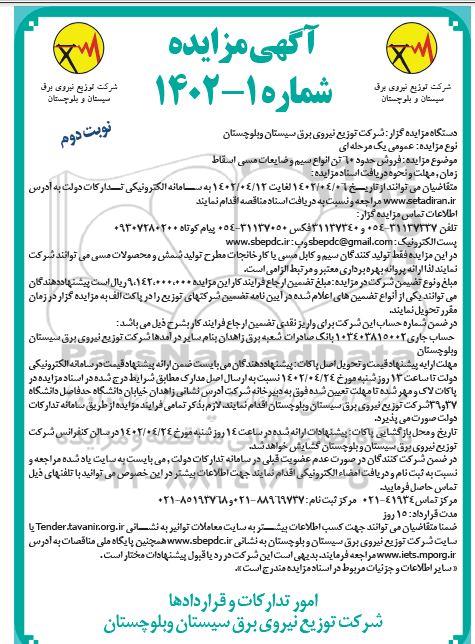 آگهی مزایده
شماره ۱-۱۴۰۲
شرکت توزیع نیروی برق
سیستان و بلوچستان
شرکت توزیع نیروی برق
سیستان و بلوچستان
نوبت دوم
دستگاه مزایده گزار: شرکت توزیع نیروی برق سیستان وبلوچستان
نوع مزایده: عمومی یک مرحله ای
موضوع مزایده: فروش حدود ۶۰ تن انواع سیم و ضایعات مسی اسقاط
زمان، مهلت و نحوه دریافت اسناد مزایده:
متقاضیان می توانند از تاریخ ۱۴۰۲/۰۴/۰۶ لغایت ۱۴۰۲/۰۴/۱۲ به سامانه الکترونیکی تدارکات دولت به آدرس
www.setadiran.ir مراجعه و نسبت به دریافت اسناد مناقصه اقدام نمایند
اطلاعات تماس مزایده گزار:
تلفن ۳۱۱۳۷۳۳۷-۰۵۴ و ۳۱۱۳۷۳۴۰ فکس ۳۱۱۳۷۰۵۰-۰۵۴ پیام کوتاه ۰۹۳۰۷۲۸۰۲۰۰
پست الکترونیک: sbepdc@gmail.com وب: www.sbepdc.ir
در این مزایده فقط تولید کنندگان سیم و کابل مسی یا کارخانجات مطرح تولید شمش و محصولات مسی می توانند شرکت
نمایند لذا ارائه پروانه بهره برداری معتبر و مرتبط الزامی است.
مبلغ و نوع تضمین شرکت در مزایده: مبلغ تضمین ارجاع فرایند کار این مزایده ۹،۱۴۲،۰۰۰،۰۰۰ ریال است پیشنهاددهندگان
می توانند یکی از أنواع تضمین های اعلام شده در آیین نامه تضمین شرکتهای توزیع را در پاکت الف به مزایده گزار در زمان
مقرر تحویل نمایند.
در ضمن شماره حساب این شرکت برای واریز نقدی تضمین ارجاع فرایند کار بشرح ذیل می باشد:
حساب جاری ۱۰۳۴۰۳۸۱۵۰۰۲ بانک صادرات شعبه برق زاهدان بنام سایر درآمدها شرکت توزیع نیروی برق سیستان
وبلوچستان
مهلت ارایه پیشنهاد قیمت و تحویل اصل پاکات: پیشنهاددهندگان می بایست ضمن ارائه پیشنهاد قیمت در سامانه الکترونیکی
دولت تا ساعت ۱۳ روز شنبه مورخ ۱۴۰۲/۰۴/۲۴ نسبت به ارسال اصل مدارک مطابق شرایط درج شده در اسناد مزایده در
پاکات لاک و مهر شده تا مهلت تعیین شده فوق به دبیرخانه شرکت آدرس نشانی زاهدان خیابان دانشگاه حدفاصل دانشگاه
۳۷ و ۳۹ شرکت توزیع نیروی برق سیستان وبلوچستان اقدام نمایند. لازم بذکر تمامی فرایند مزایده از طریق سامانه تدارکات
دولت صورت می پذیرد.
تاریخ و محل بازگشایی پاکات: پیشنهادات ارائه شده در ساعت ۱۴ روز شنبه مورخ ۱۴۰۲/۰۴/۲۴ در سالن کنفرانس شرکت
توزیع نیروی برق سیستان و بلوچستان گشایش خواهد شد.
در ضمن شرکت کنندگان در صورت عدم عضویت قبلی در سامانه تدارکات دولت، می بایست به سایت یاد شده مراجعه و
نسبت به ثبت نام و دریافت امضاء الکترونیکی اقدام نمایند جهت اطلاعات بیشتر در این خصوص می توانید با تلفنهای ذیل
تماس حاصل فرمایید.
مرکز تماس ۴۱۹۳۴-۰۲۱ مرکز ثبت نام: ۸۸۹۶۹۷۳۷-۰۲۱ و ۸۵۱۹۳۷۶۸-۰۲۱
مدت قرارداد: ۱۵ روز
ضمنا متقاضیان می توانند جهت کسب اطلاعات بیشتر به سایت معاملات توانیر به نشانی Tender.tavanir.org.ir یا
سایت شرکت توزیع نیروی برق سیستان و بلوچستان به نشانی www.sbepdc.ir همچنین پایگاه ملی مناقصات به آدرس
www.iets.mporg.ir مراجعه فرمایند. بدیهی است این شرکت در رد یا قبول پیشنهادات مختار است.
« سایر اطلاعات و جزئیات مربوط در اسناد مزایده مندرج است».
امور تدارکات و قراردادها
شرکت توزیع نیروی برق سیستان وبلوچستان